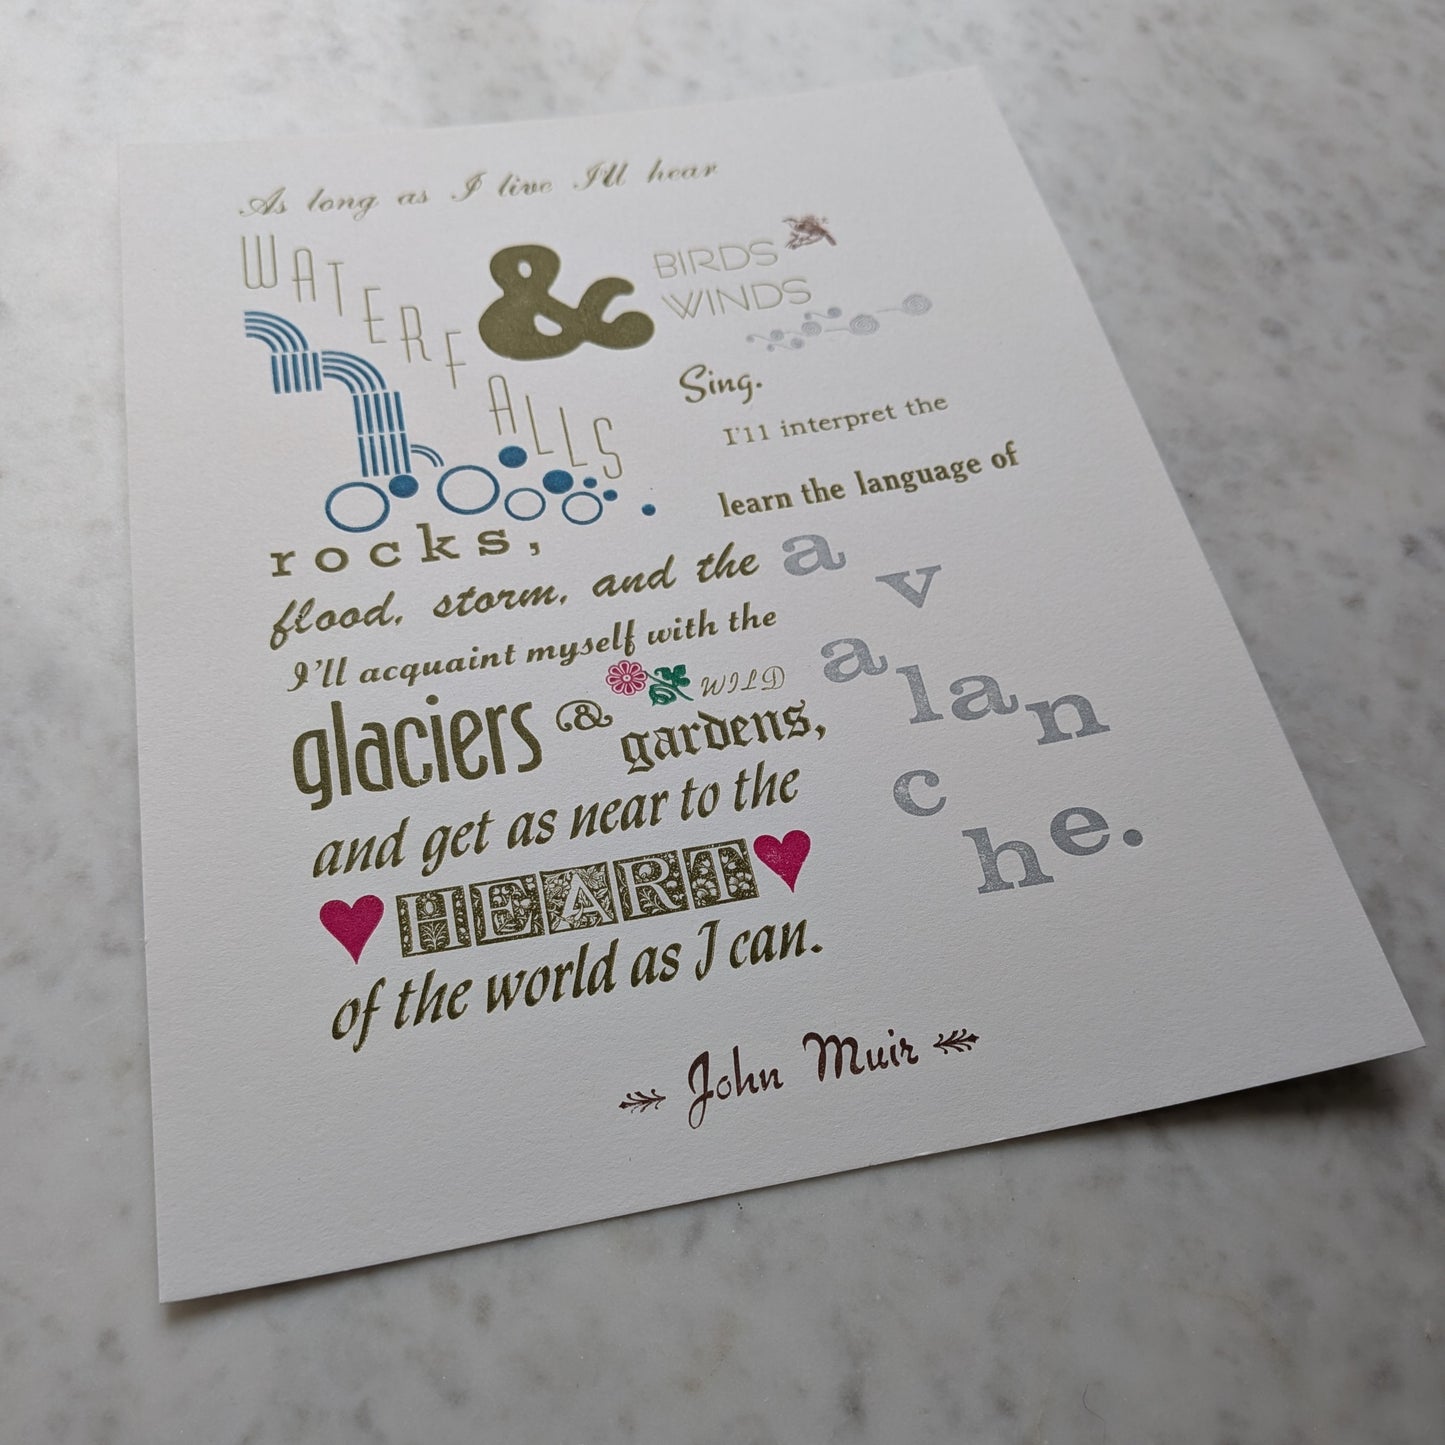 As long as I live I'll hear
WATERFALLS & BIRDS
WINDS
Sing.
I'll interpret the
rocks,
learn the language of
flood, storm, and the
avalanche.
I'll acquaint myself with the
glaciers & WILD
gardens,
and get as near to the
HEART
of the world as I can.
John Muir